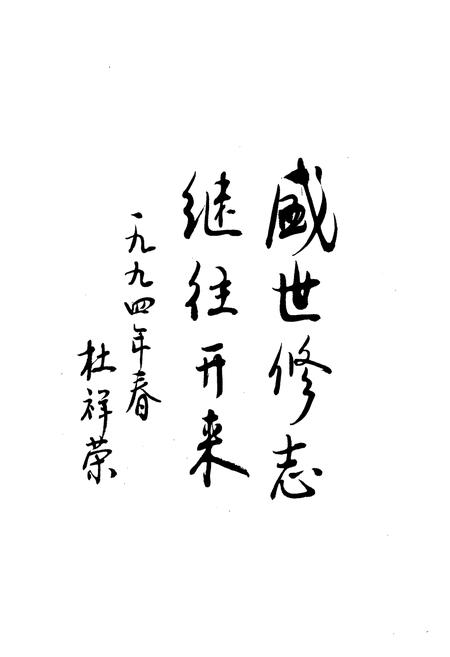 盛世修志
继往开来
一九九四年春
杜祥荣